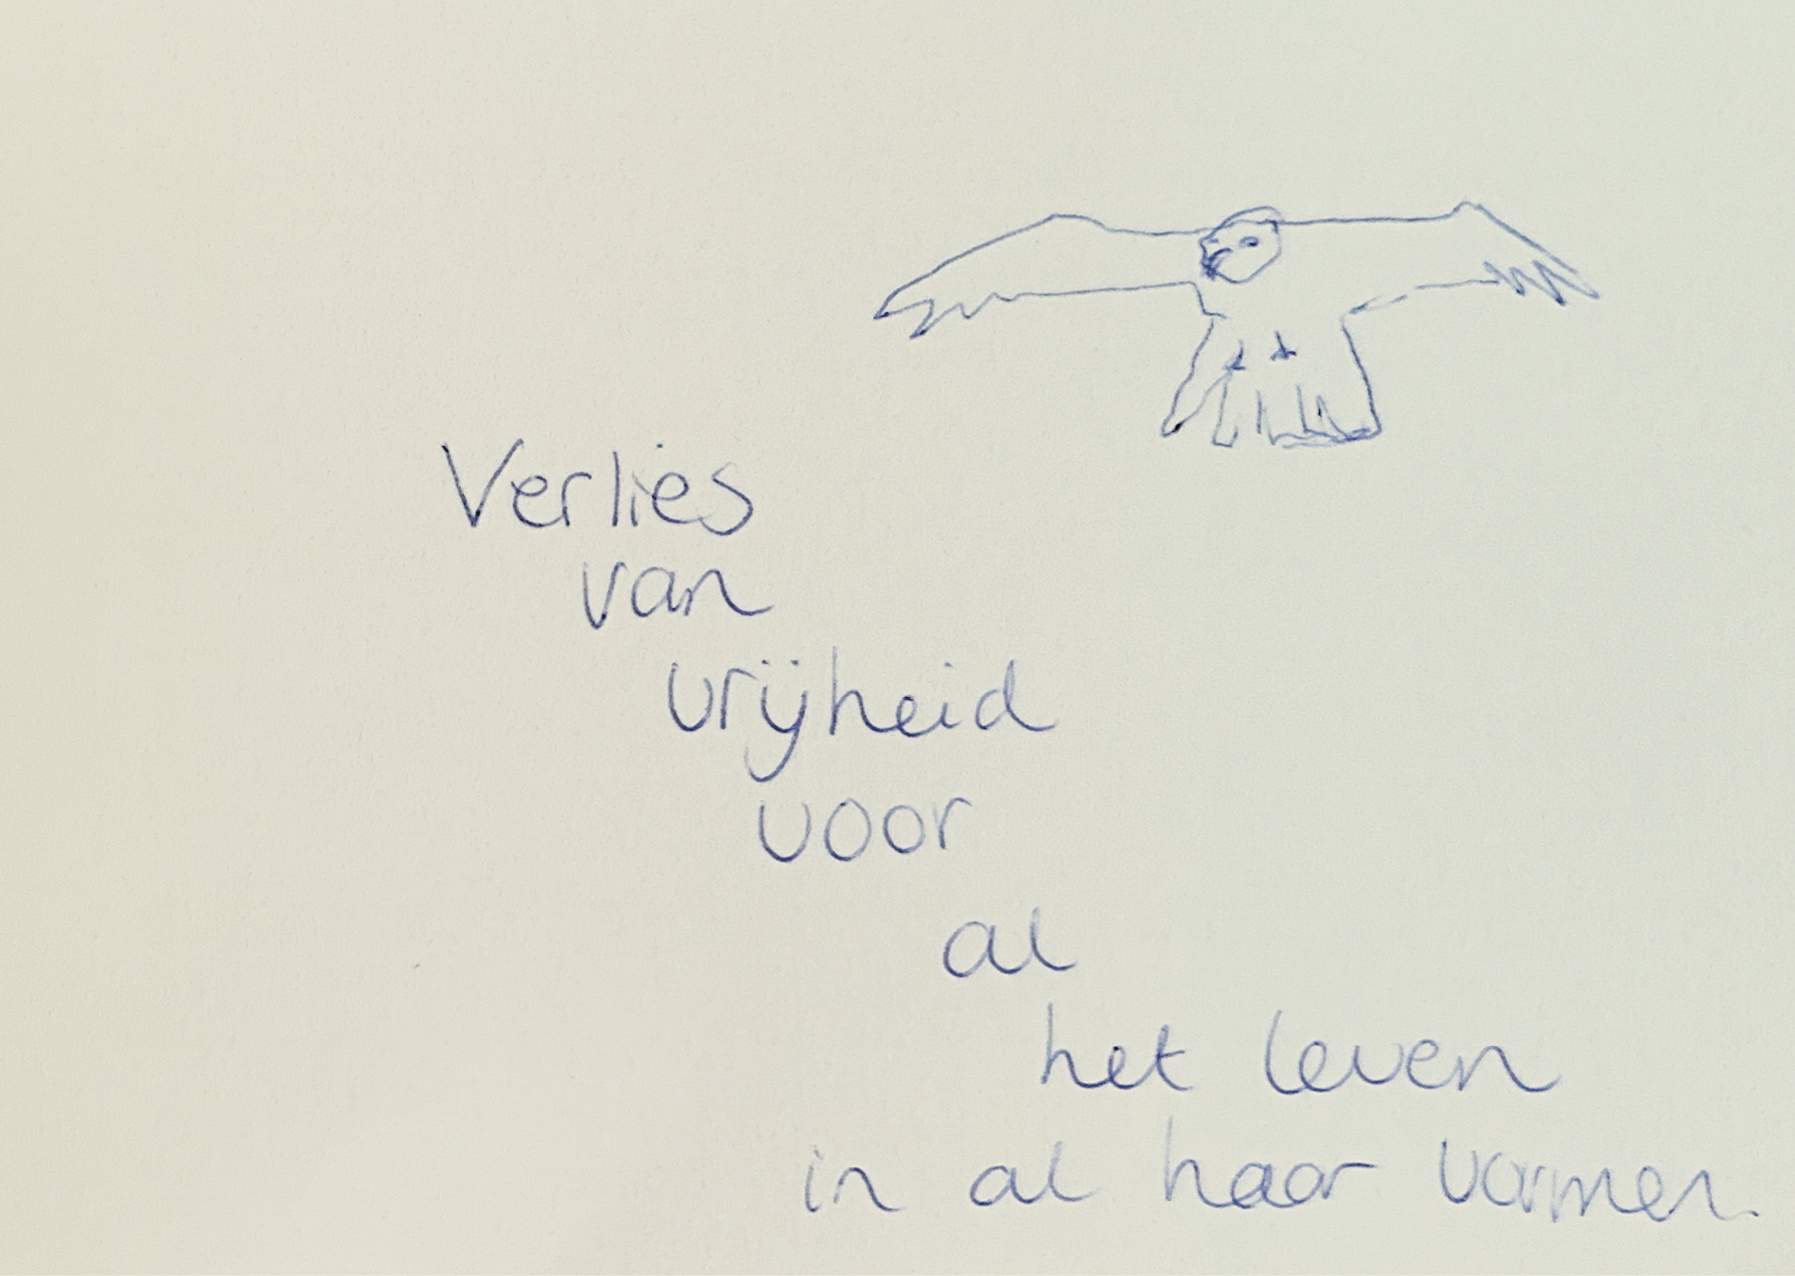 Verlies
van
vrijheid
voor
al
het leven
in al haar vormen.